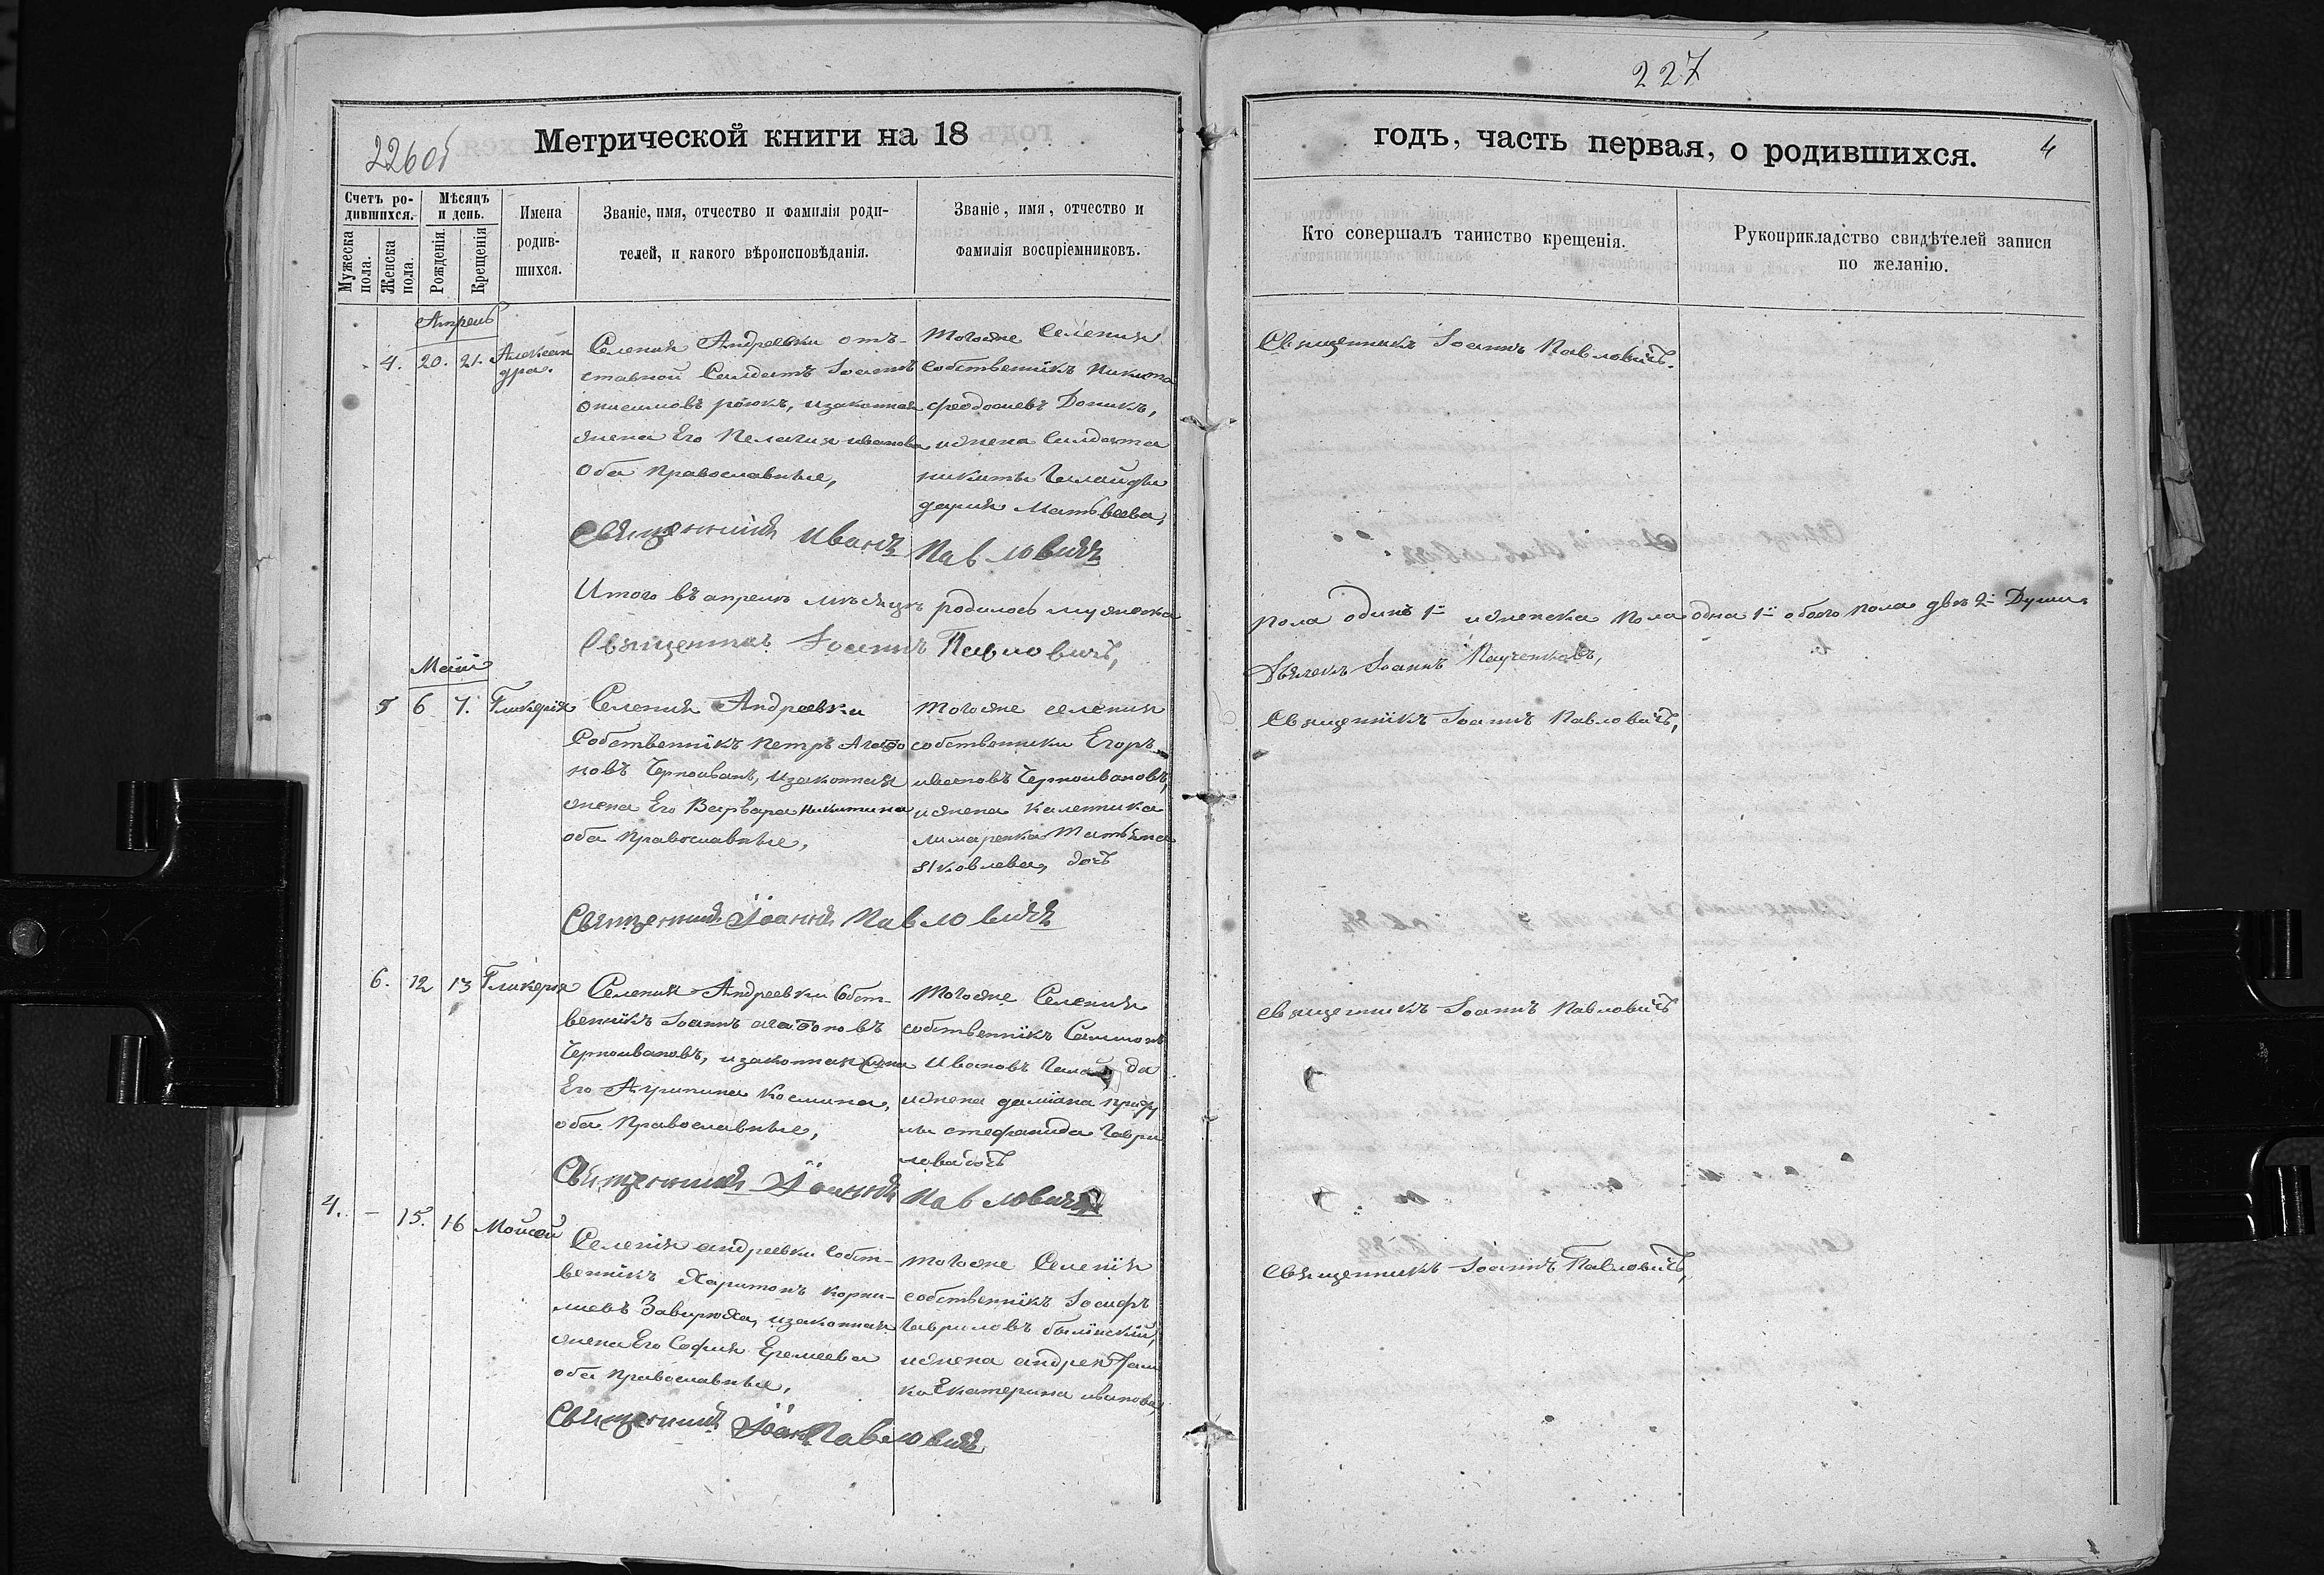 227
226об
Метрической книги на 18
годъ, часть первая, о родившихся.
4
Счетъ родившихся.
Мужеска пола.
Женска пола.
Мѣсяцъ и день.
Рожденія.
Крещенія
Имена родив-
шихся.
Званіе, имя, отчество и фамилія роди-
телей, и какого вѣроисповѣданія.
Званіе, имя, отчество и
фамилія воспріемниковъ.
Кто совершалъ таинство крещенія.
Рукоприкладство свидѣтелей записи
по желанію.
Апрель
4. 20. 21. Алексан
дра.
Селенія Андреевки отъ-
ставной Салдатъ Іоаннъ
онисимовъ изаконная
жена Его Пелагия иванова
Оба православные,
тогоже Селения
Собственникъ Никита
феодосиевъ Доникъ,
ижена Салдата
никиты
дария Матвеева,
Священникъ Иванъ Павловичъ
Священникъ Іоаннъ Павловичъ.
Итого въ апрелѣ мѣсяцѣ родилось мужеска
пола одинъ 1 ̶ иженска пола одна 1 ̶ обоего пола двѣ 2 ̶ Души
Священникъ Іоаннъ Павловичъ,
Дьячекъ Іоаннъ
Май
5 6 7. Гликерия
Селения Андреевки
Собственникъ Петръ Агафо
новъ Черноиванъ, изаконная
жена Его Варвара Никитина
оба православные,
тогоже селения
собственники Егоръ
ивановъ Черноивановъ,
ижена каленика
лимаренка Татьяна
Яковлева, дочь
Священникъ Іоаннъ Павловичъ
Священникъ Іоаннъ Павловичъ,
6. 12 13 Гликерия
Селения Андреевки Собст-
венникъ Іоаннъ агафоновъ
Черноивановъ, изаконная жена
Его Агрипина Космина,
оба православные,
тогоже Селения
собственникъ Самсонъ
Ивановъ да
ижена даміана
стефанида Гаври
лова дочь
Священникъ Іоаннъ Павловичъ
священникъ Іоаннъ Павловичъ
4. – 15. 16 Моисей
Селенія андреевки Собст-
венникъ Харитонъ корни-
лиевъ Завирюха, изаконная
жена Его София Еремеева
оба православные,
тогоже Селения
собственникъ Іосифъ
Гавриловъ
ижена андрея
ка Екатерина иванова,
Священникъ Іоаннъ Павловичъ
священникъ Іоаннъ Павловичъ,